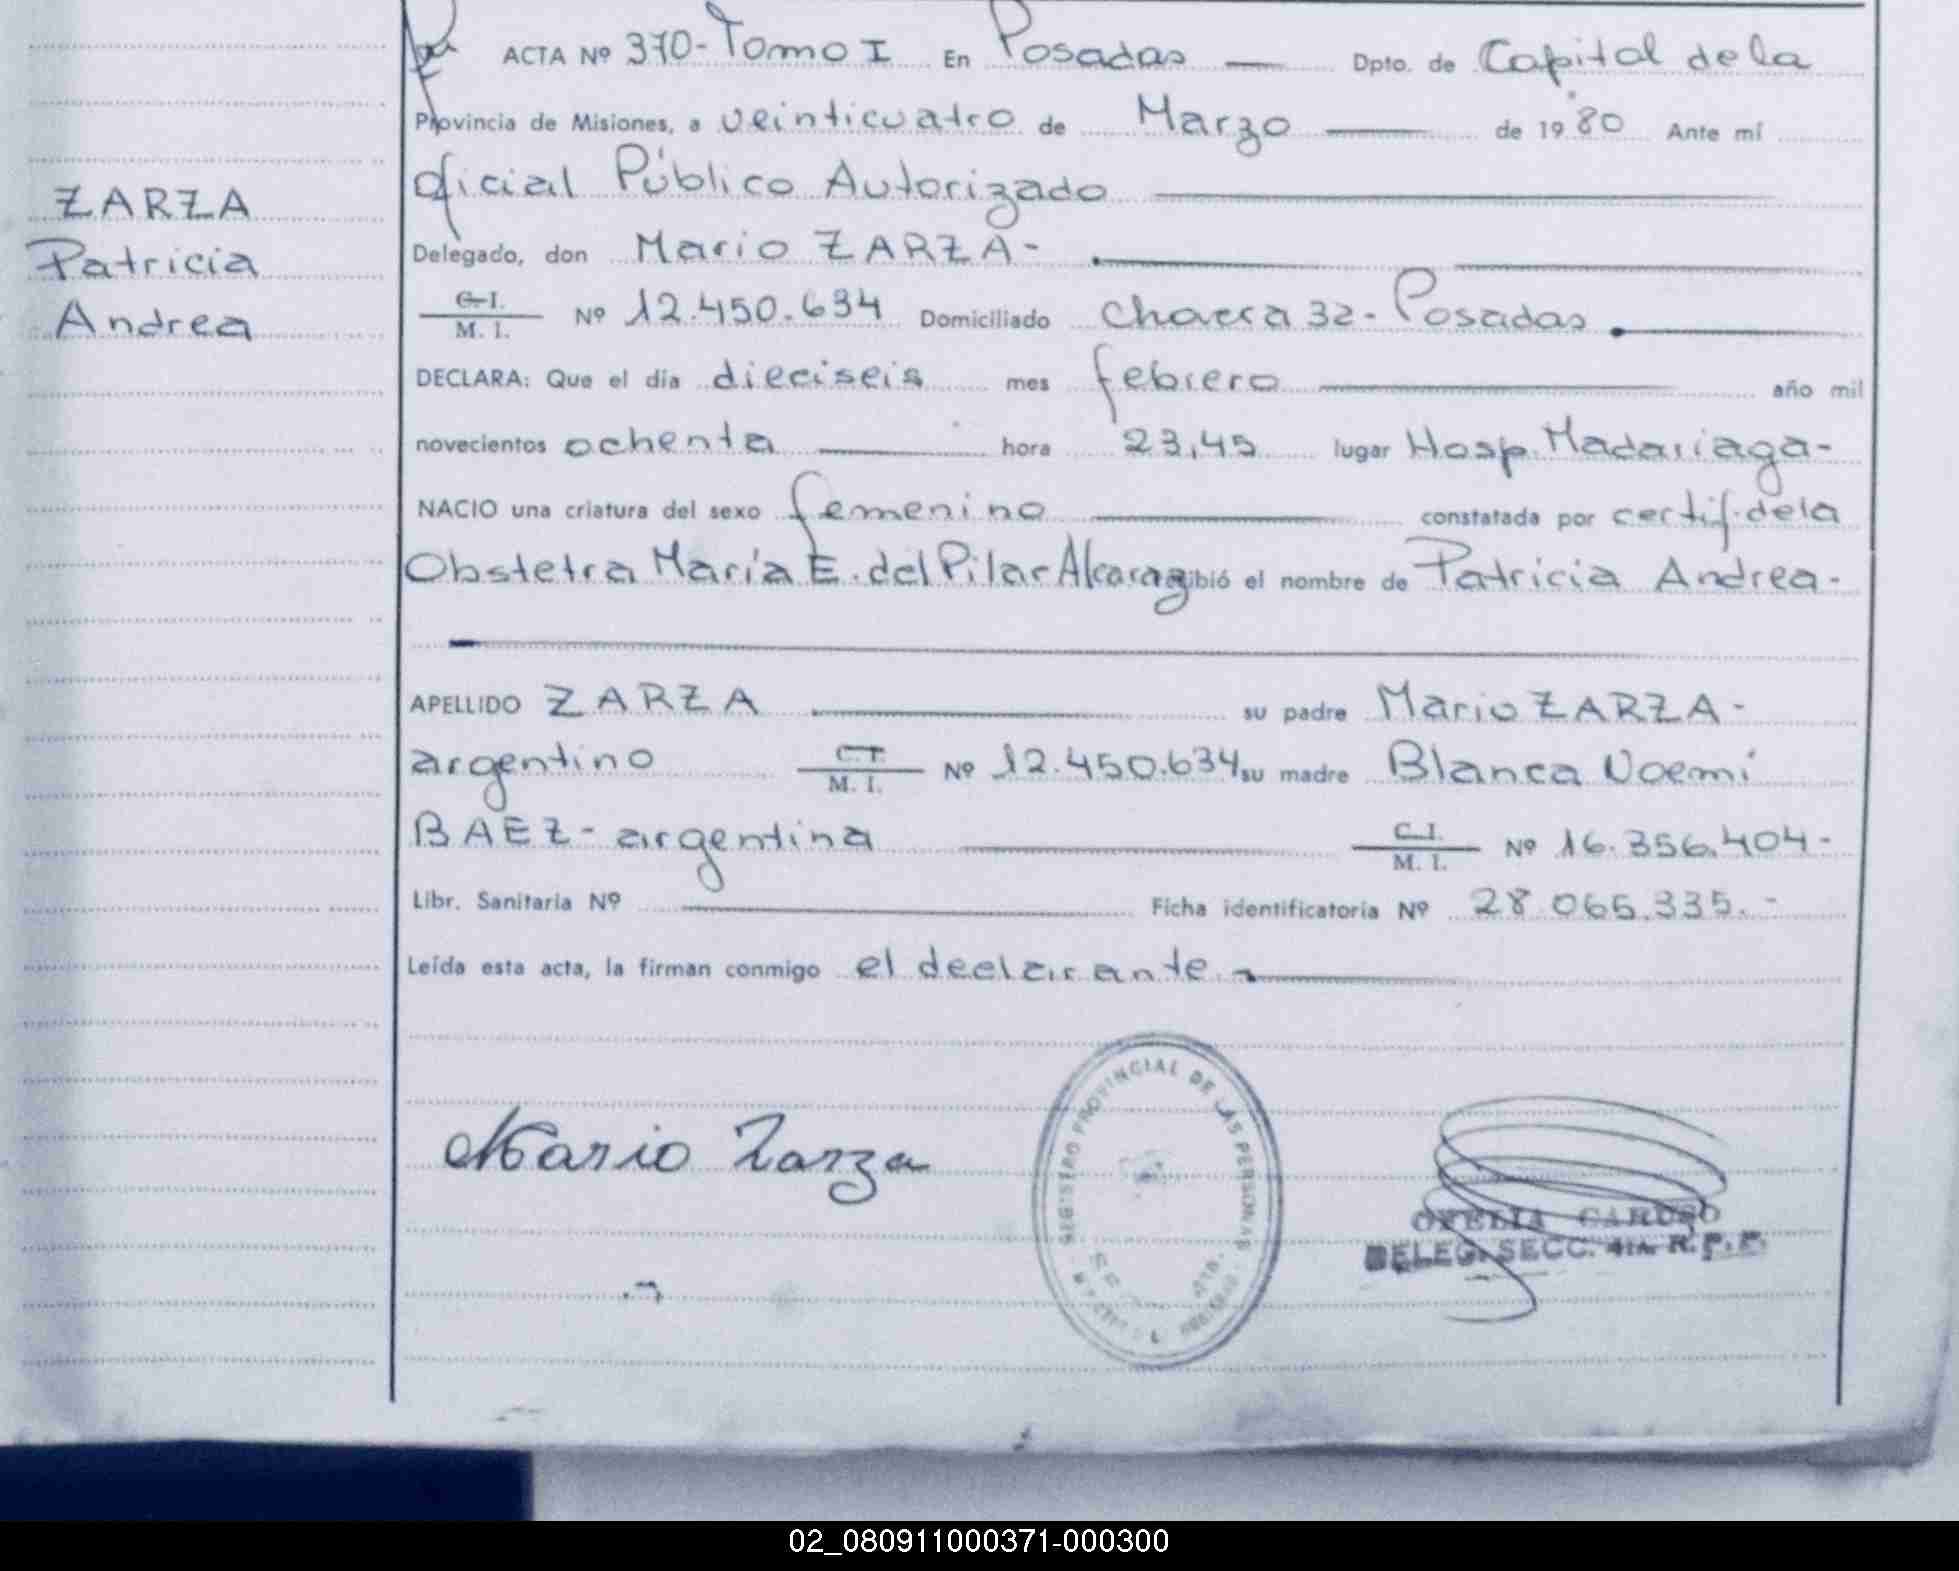 ACTA Nº 370-Tomo I En Posadas Dpto. de Capital de la
Provincia de Misiones, a veinticuatro de Marzo de 1980 Ante mí
oficial Público Autorizado
ZARZA
Patricia
Andrea
Delegado, don Mario ZARZA-
C.I. M. I. Nº 12.450.634 Domiciliado chacra 32- Posadas
DECLARA: Que el día dieciseis mes febrero año mil
novecientos ochenta hora 23,45 lugar Hosp. Madariaga-
NACIO una criatura del sexo femenino constatada por certif. de la
Obstetra María E. del Pilar Alcaraz ibió el nombre de Patricia Andrea-
APELLIDO ZARZA su padre Mario ZARZA-
argentino C.I. M. I. Nº 12.450.634 su madre Blanca Noemi
BAEZ- argentina C.I. M. I. Nº 16.356.404-
Libr. Sanitaria Nº Ficha identificatoria Nº 28.065.335.-
Leída esta acta, la firman conmigo el declarante
Mario Zarza
REGISTRO PROVINCIAL DE LAS PERSONAS
OFELIA CARUSO
DELEG. SECC. 4ta. R. P. P.
02_080911000371-000300